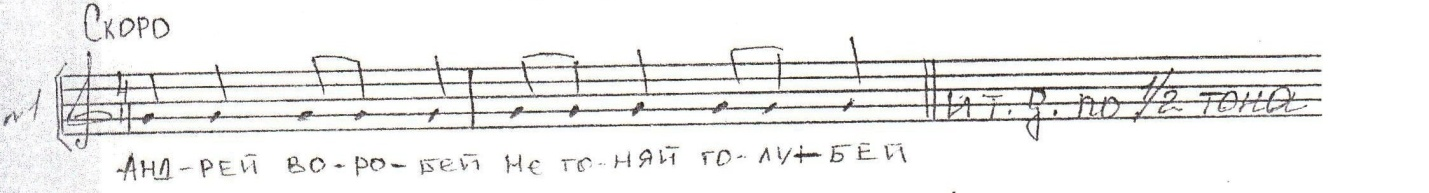 Скоро
№1
и т. д. по 1/2 тона
АНД-РЕЙ ВО-РО-БЕЙ НЕ ГО-НЯЙ ГО-ЛУ-БЕЙ